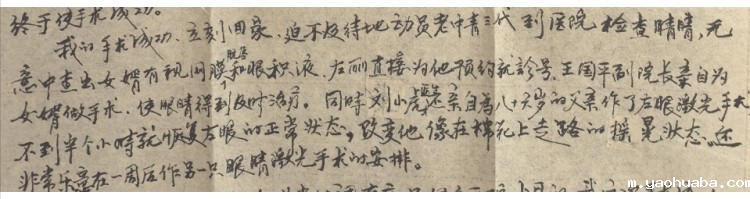 终于使手术成功。
我的手术成功、立刻回家、迫不及待地动员老中青三代到医院检查眼睛,无
意中查出女婿有视网膜脱落和眼积液、左丽直接为他预约就诊号、王国平副院长亲自为
女婿做手术、使眼睛得到及时治疗。同时刘小虎医亲自为八十岁的父亲作了左眼激光手术
不到半个小时就恢复左眼的正常状态,改变他像在棉花上走路的摇晃状态、还
非常乐意在一周后作另一只眼睛激光手术的安排。
m.yaohuaba.com